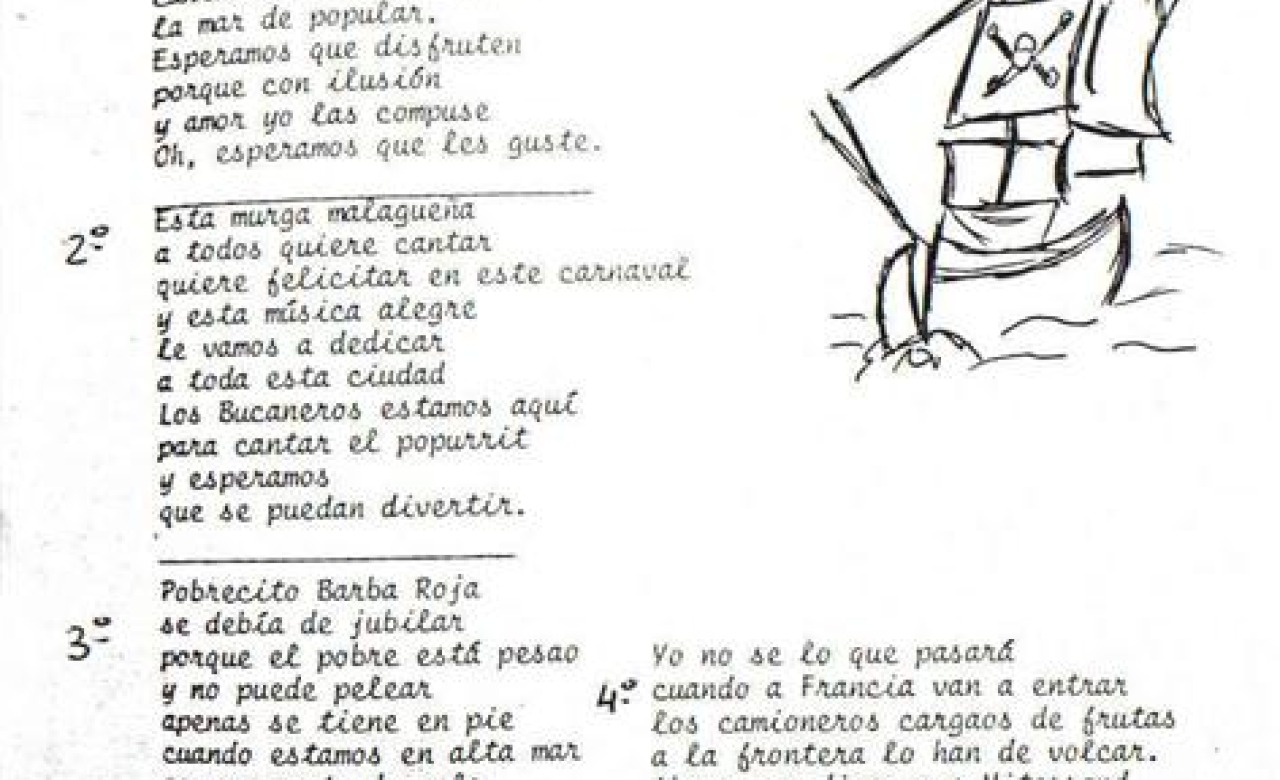 la mar de popular.
Esperamos que disfruten
porque con ilusión
y amor yo las compuse
Oh, esperamos que les guste.
2º
Esta murga malagueña
a todos quiere cantar
quiere felicitar en este carnaval
y esta música alegre
le vamos a dedicar
a toda esta ciudad
Los Bucaneros estamos aquí
para cantar el popurrit
y esperamos
que se puedan divertir.
3º
Pobrecito Barba Roja
se debía de jubilar
porque el pobre está pesao
y no puede pelear
apenas se tiene en pie
cuando estamos en alta mar
4º
Yo no se lo que pasará
cuando a Francia van a entrar
los camioneros cargaos de frutas
a la frontera lo han de volcar.